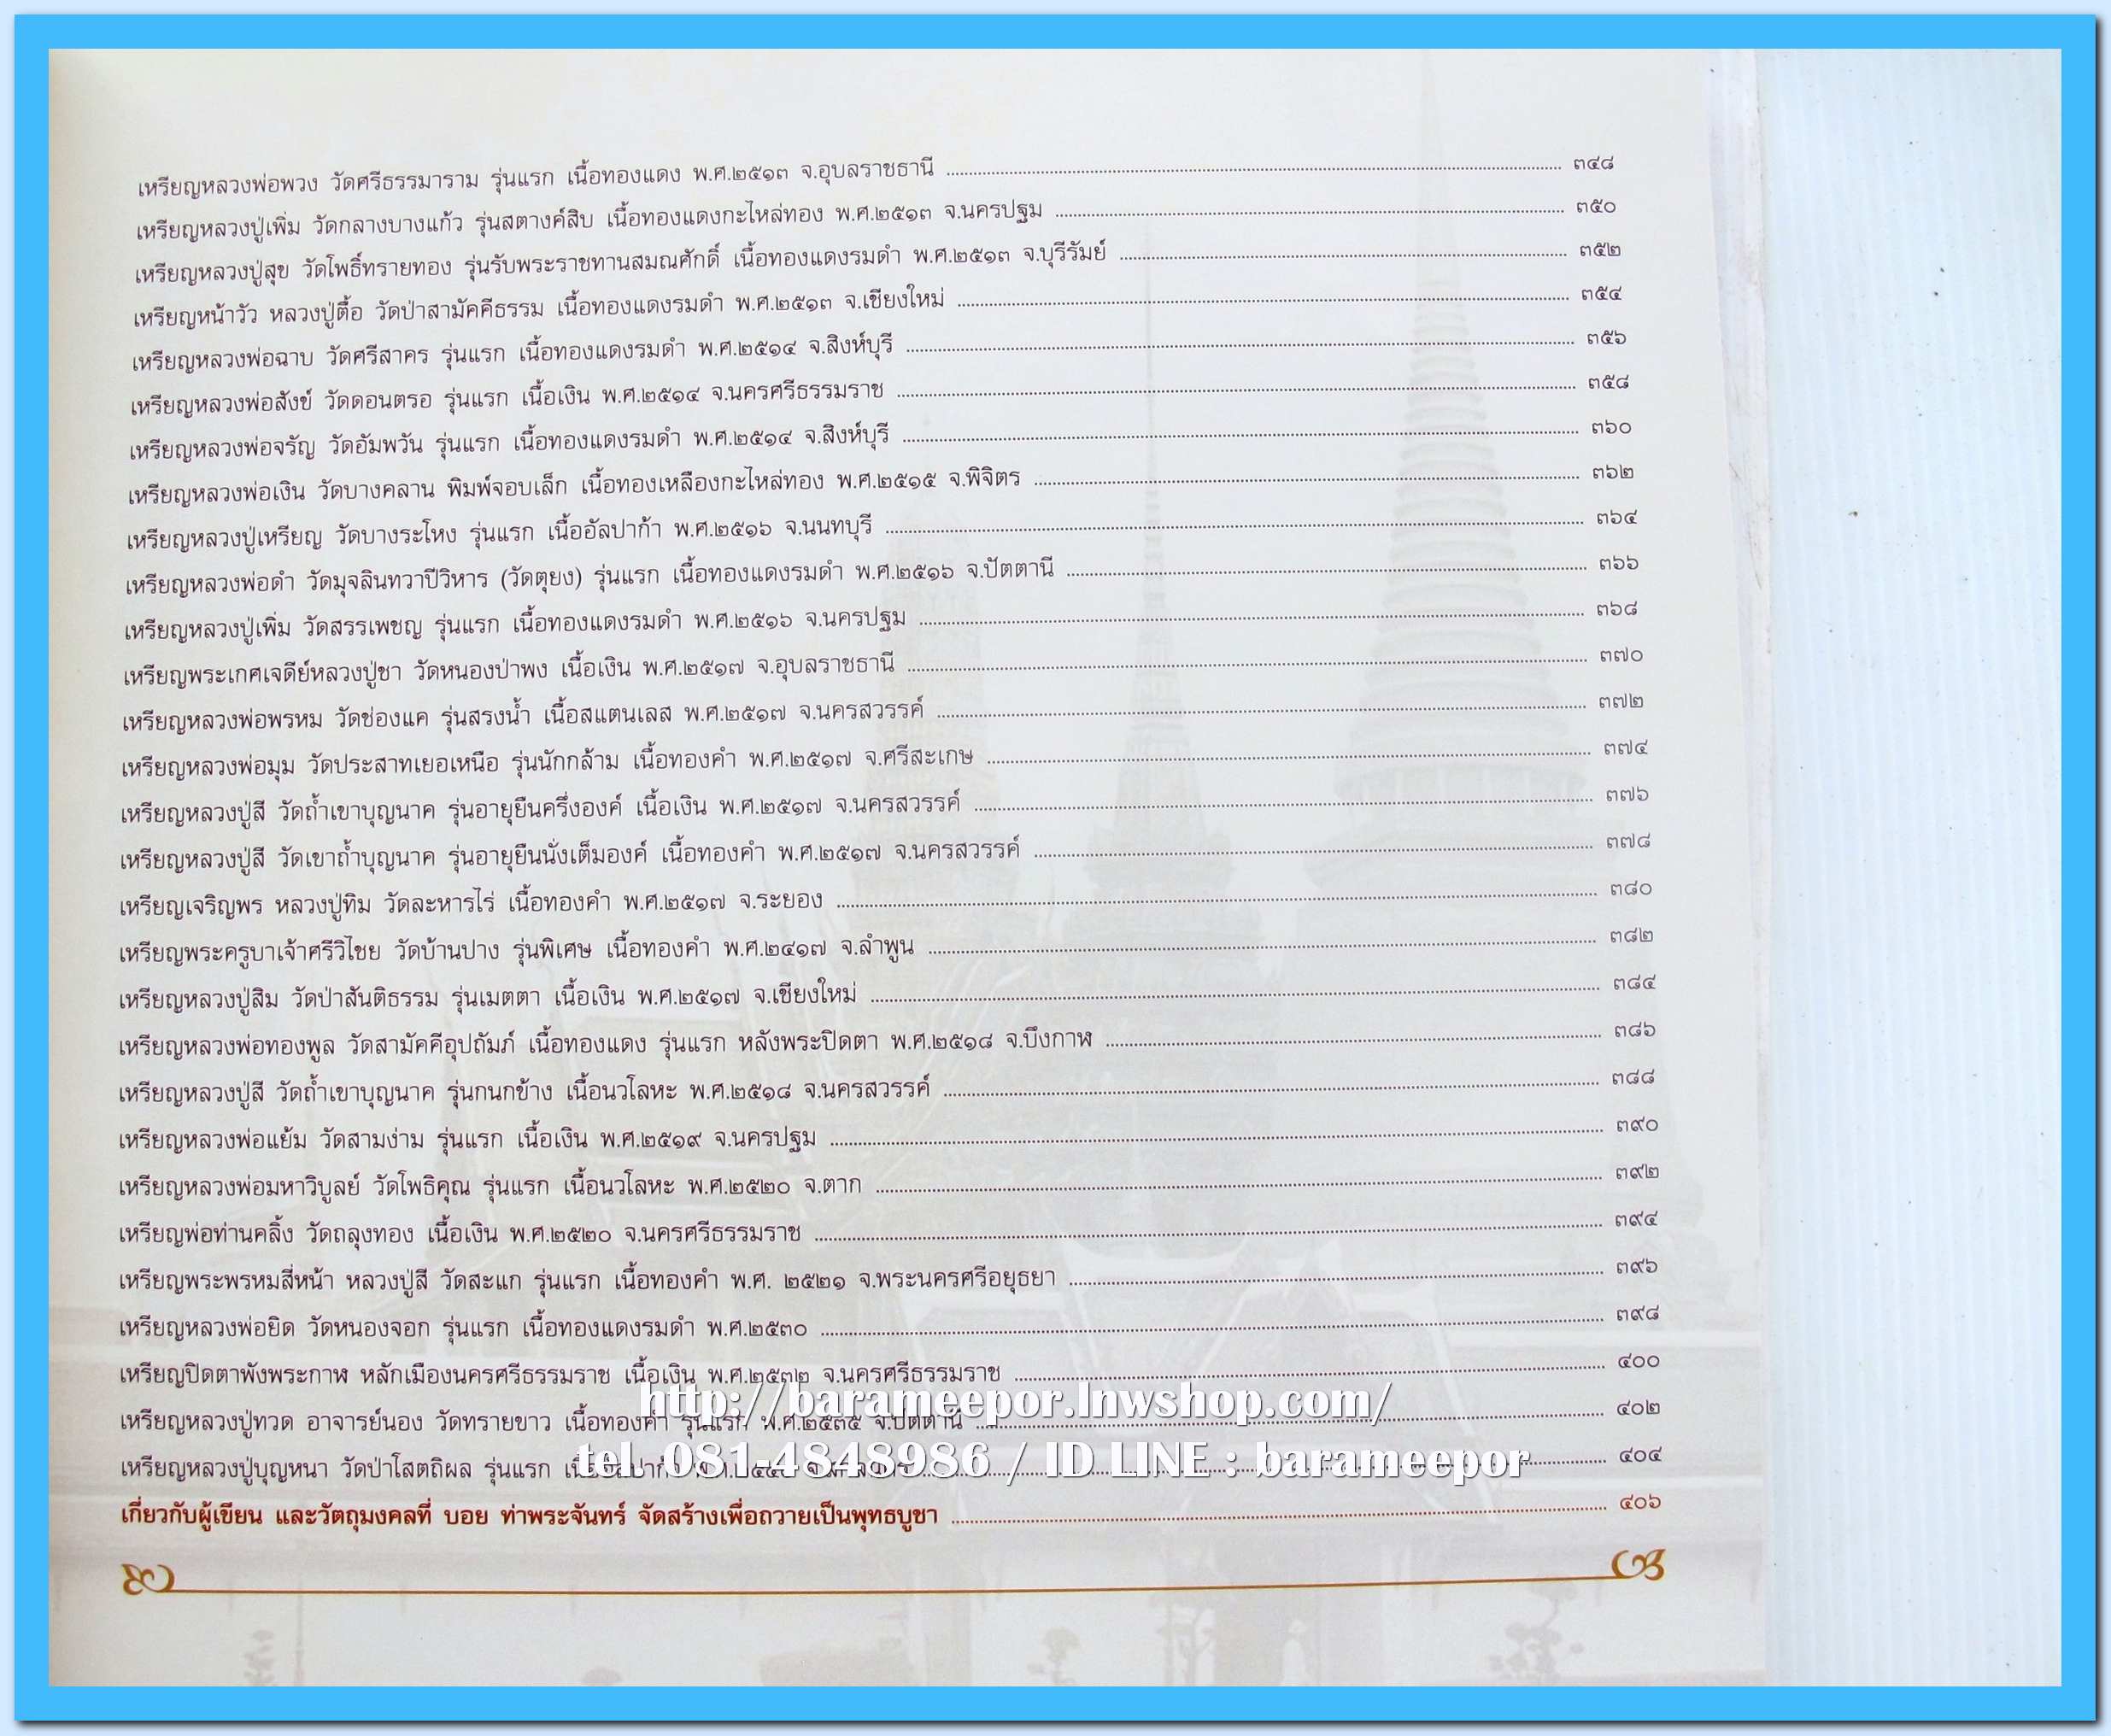 เหรียญหลวงพ่อพวง วัดศรีธรรมาราม รุ่นแรก เนื้อทองแดง พ.ศ.๒๕๑๓ จ.อุบลราชธานี ๓๔๘
เหรียญหลวงปู่เพิ่ม วัดกลางบางแก้ว รุ่นสตางค์สิบ เนื้อทองแดงกะไหล่ทอง พ.ศ.๒๕๑๓ จ.นครปฐม ๓๕๐
เหรียญหลวงปู่สุข วัดโพธิ์ทรายทอง รุ่นรับพระราชทานสมณศักดิ์ เนื้อทองแดงรมดำ พ.ศ.๒๕๑๓ จ.บุรีรัมย์ ๓๕๒
เหรียญหน้าวัว หลวงปู่ตื้อ วัดป่าสามัคคีธรรม เนื้อทองแดงรมดำ พ.ศ.๒๕๑๓ จ.เชียงใหม่ ๓๕๔
เหรียญหลวงพ่อฉาบ วัดศรีสาคร รุ่นแรก เนื้อทองแดงรมดำ พ.ศ.๒๕๑๔ จ.สิงห์บุรี ๓๕๖
เหรียญหลวงพ่อสังข์ วัดดอนตรอ รุ่นแรก เนื้อเงิน พ.ศ.๒๕๑๔ จ.นครศรีธรรมราช ๓๕๘
เหรียญหลวงพ่อจรัญ วัดอัมพวัน รุ่นแรก เนื้อทองแดงรมดำ พ.ศ.๒๕๑๔ จ.สิงห์บุรี ๓๖๐
เหรียญหลวงพ่อเงิน วัดบางคลาน พิมพ์จอบเล็ก เนื้อทองเหลืองกะไหล่ทอง พ.ศ.๒๕๑๕ จ.พิจิตร ๓๖๒
เหรียญหลวงปู่เหรียญ วัดบางระโหง รุ่นแรก เนื้ออัลปาก้า พ.ศ.๒๕๑๖ จ.นนทบุรี ๓๖๔
เหรียญหลวงพ่อดำ วัดมุจลินทวาปีวิหาร (วัดตุยง) รุ่นแรก เนื้อทองแดงรมดำ พ.ศ.๒๕๑๖ จ.ปัตตานี ๓๖๖
เหรียญหลวงปู่เพิ่ม วัดสรรเพชญ รุ่นแรก เนื้อทองแดงรมดำ พ.ศ.๒๕๑๖ จ.นครปฐม ๓๖๘
เหรียญพระเกศเจดีย์หลวงปู่ชา วัดหนองป่าพง เนื้อเงิน พ.ศ.๒๕๑๗ จ.อุบลราชธานี ๓๗๐
เหรียญหลวงพ่อพรหม วัดช่องแค รุ่นสรงน้ำ เนื้อสแตนเลส พ.ศ.๒๕๑๗ จ.นครสวรรค์ ๓๗๒
เหรียญหลวงพ่อมุม วัดประสาทเยอเหนือ รุ่นนักกล้าม เนื้อทองคำ พ.ศ.๒๕๑๗ จ.ศรีสะเกษ ๓๗๔
เหรียญหลวงปู่สี วัดถ้ำเขาบุญนาค รุ่นอายุยืนครึ่งองค์ เนื้อเงิน พ.ศ.๒๕๑๗ จ.นครสวรรค์ ๓๗๖
เหรียญหลวงปู่สี วัดเขาถ้ำบุญนาค รุ่นอายุยืนนั่งเต็มองค์ เนื้อทองคำ พ.ศ.๒๕๑๗ จ.นครสวรรค์ ๓๗๘
เหรียญเจริญพร หลวงปู่ทิม วัดละหารไร่ เนื้อทองคำ พ.ศ.๒๕๑๗ จ.ระยอง ๓๘๐
เหรียญพระครูบาเจ้าศรีวิไชย วัดบ้านปาง รุ่นพิเศษ เนื้อทองคำ พ.ศ.๒๔๑๗ จ.ลำพูน ๓๘๒
เหรียญหลวงปู่สิม วัดป่าสันติธรรม รุ่นเมตตา เนื้อเงิน พ.ศ.๒๕๑๗ จ.เชียงใหม่ ๓๘๔
เหรียญหลวงพ่อทองพูล วัดสามัคคีอุปถัมภ์ เนื้อทองแดง รุ่นแรก หลังพระปิดตา พ.ศ.๒๕๑๘ จ.บึงกาฬ ๓๘๖
เหรียญหลวงปู่สี วัดถ้ำเขาบุญนาค รุ่นกนกข้าง เนื้อนวโลหะ พ.ศ.๒๕๑๘ จ.นครสวรรค์ ๓๘๘
เหรียญหลวงพ่อแย้ม วัดสามง่าม รุ่นแรก เนื้อเงิน พ.ศ.๒๕๑๙ จ.นครปฐม ๓๙๐
เหรียญหลวงพ่อมหาวิบูลย์ วัดโพธิคุณ รุ่นแรก เนื้อนวโลหะ พ.ศ.๒๕๒๐ จ.ตาก ๓๙๒
เหรียญพ่อท่านคลิ้ง วัดถลุงทอง เนื้อเงิน พ.ศ.๒๕๒๐ จ.นครศรีธรรมราช ๓๙๔
เหรียญพระพรหมสี่หน้า หลวงปู่สี วัดสะแก รุ่นแรก เนื้อทองคำ พ.ศ. ๒๕๒๑ จ.พระนครศรีอยุธยา ๓๙๖
เหรียญหลวงพ่อยิด วัดหนองจอก รุ่นแรก เนื้อทองแดงรมดำ พ.ศ.๒๕๓๐ ๓๙๘
เหรียญปิดตาพังพระกาฬ หลักเมืองนครศรีธรรมราช เนื้อเงิน พ.ศ.๒๕๓๒ จ.นครศรีธรรมราช ๔๐๐
http://barameepor.lnwshop.com/
เหรียญหลวงปู่ทวด อาจารย์นอง วัดทรายขาว เนื้อทองคำ รุ่นแรก พ.ศ.๒๕๓๕ จ.ปัตตานี ๔๐๒
tel. 081-4848986 / ID LINE : barameepor
เหรียญหลวงปู่บุญหนา วัดป่าโสตถิผล รุ่นแรก ๔๐๔
เกี่ยวกับผู้เขียน และวัตถุมงคลที่ บอย ท่าพระจันทร์ จัดสร้างเพื่อถวายเป็นพุทธบูชา ๔๐๖